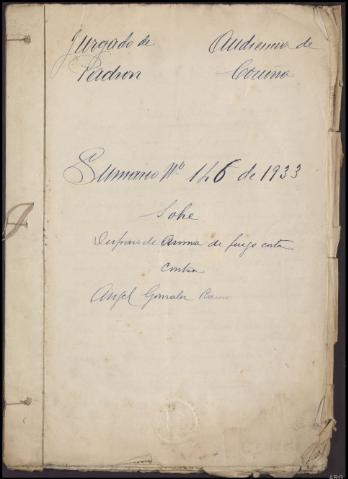 Juzgado de Audiencia de
Padron Coruña
Sumario Nº 146 de 1933
Sobre
Disparo de Arma de fuego corta
contra
Angel Gonzalez
ARG